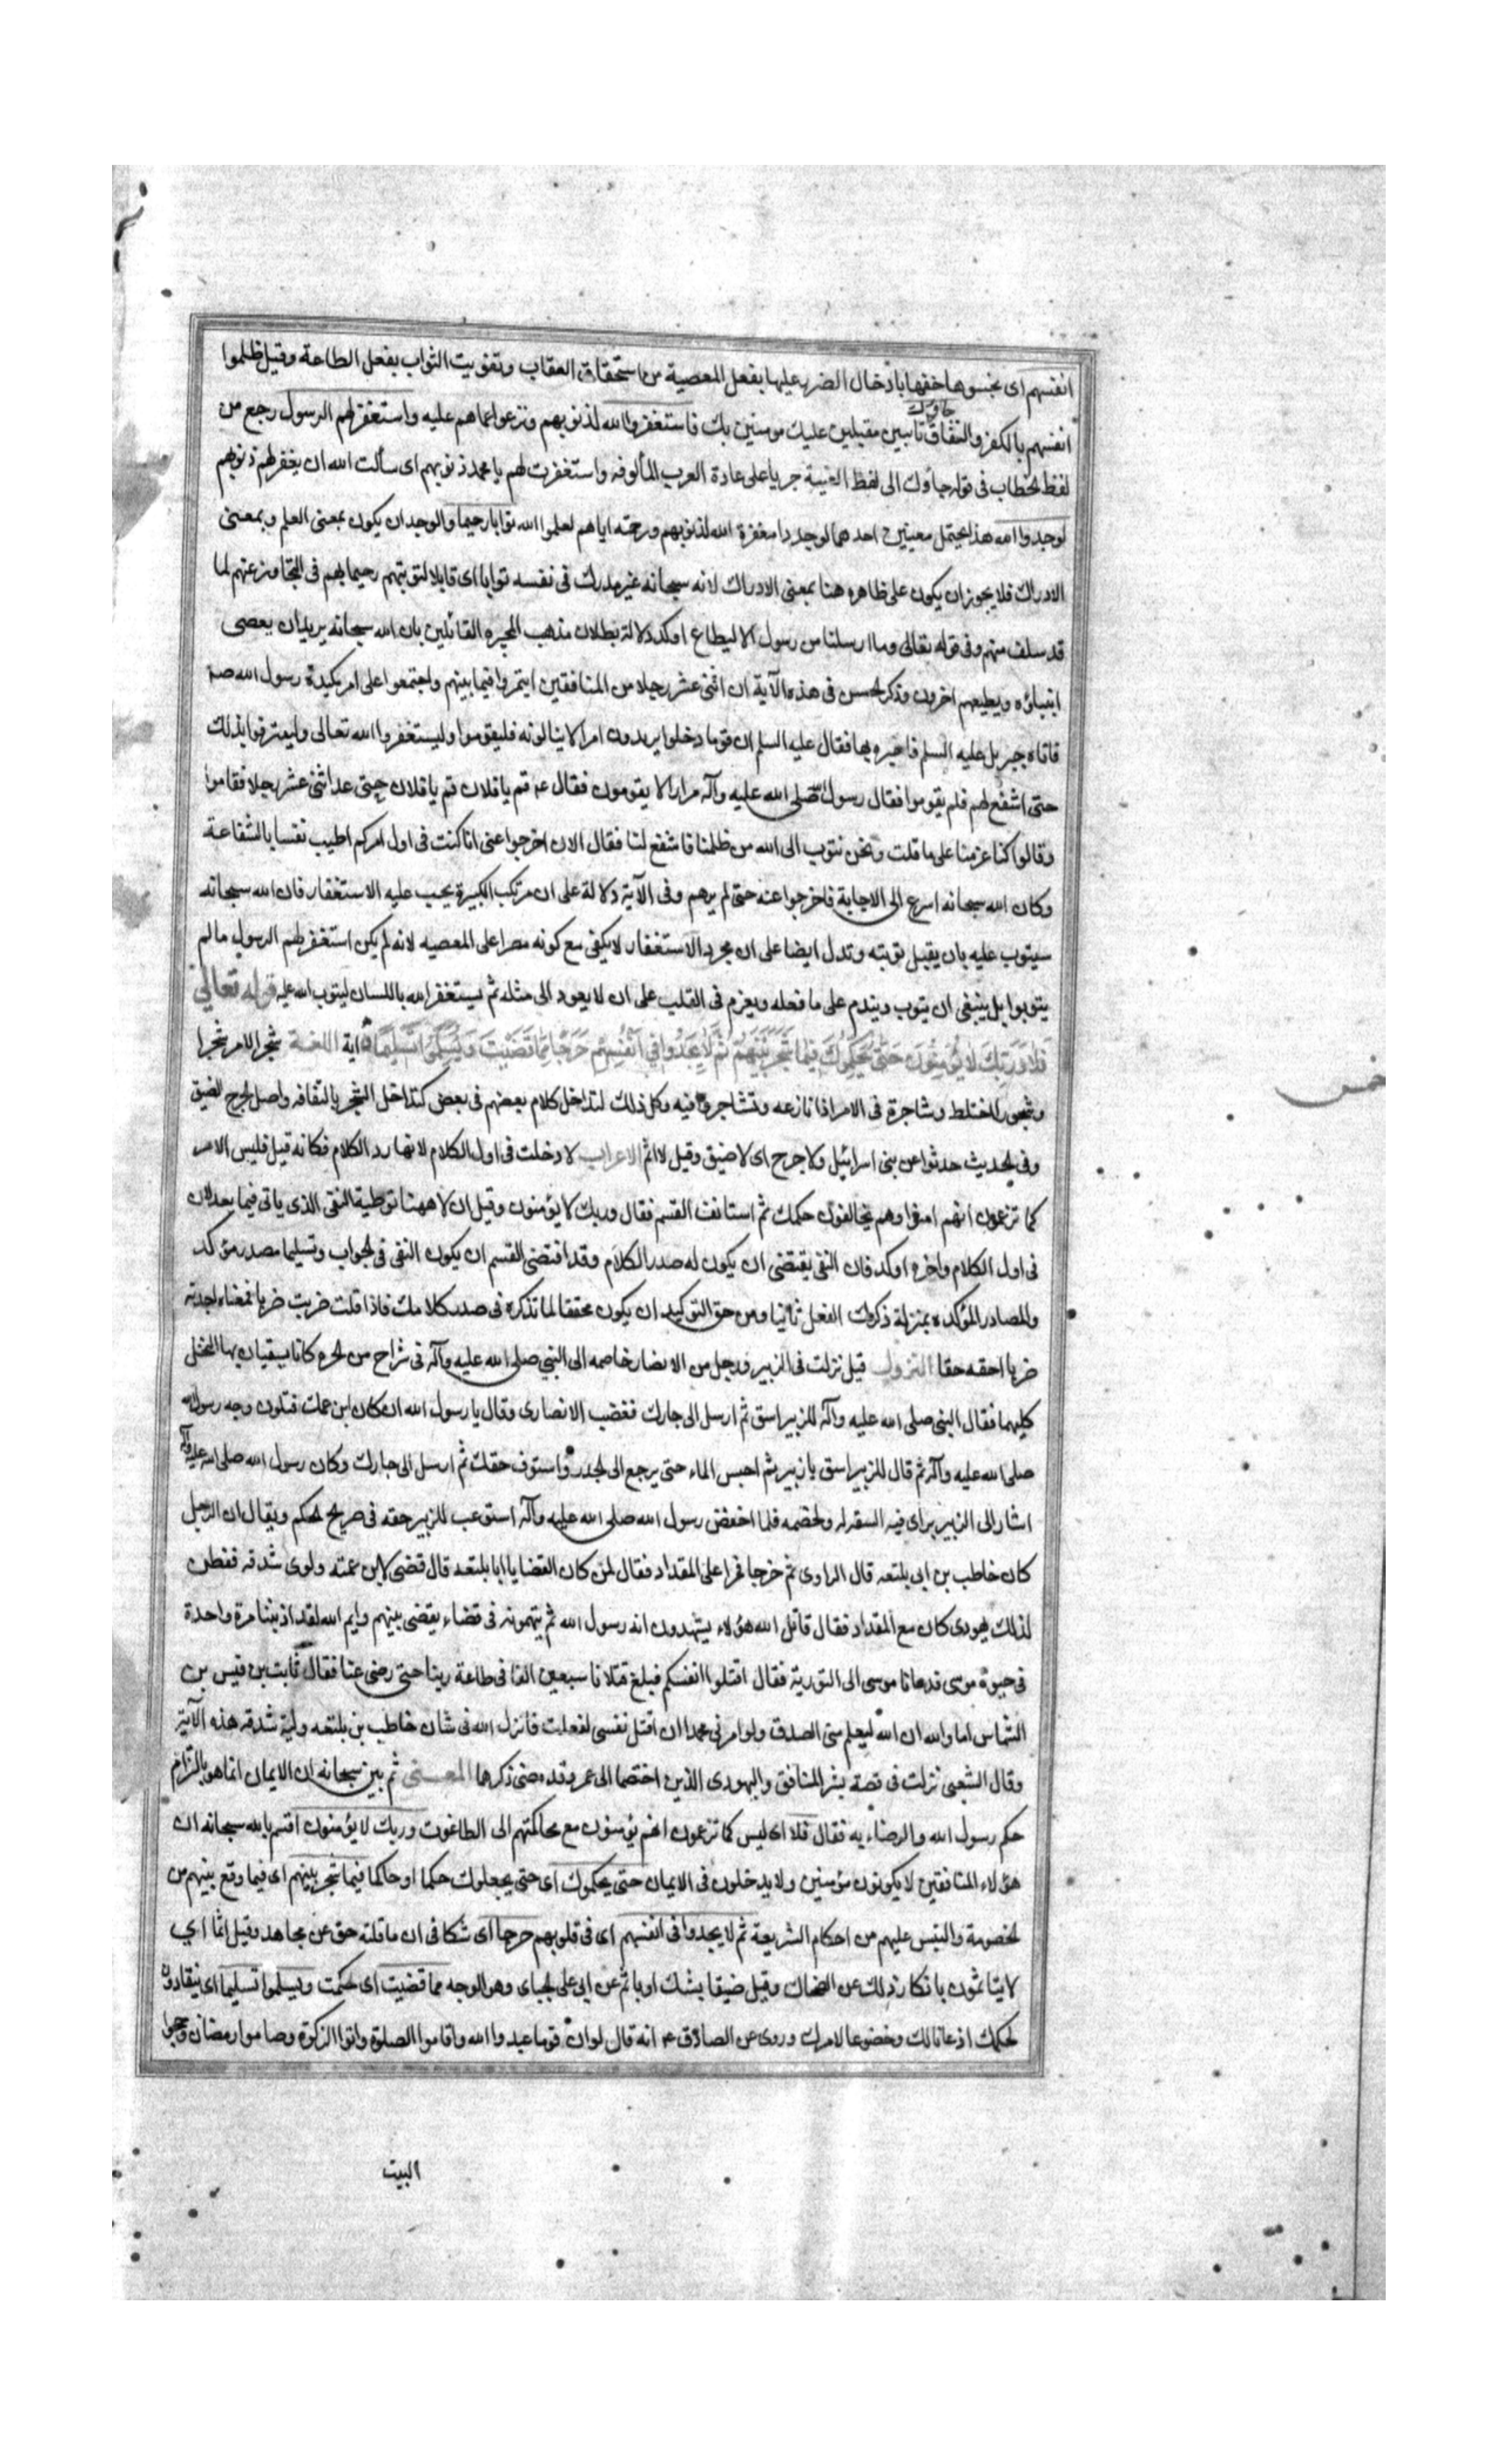 انفسهم اى بخسوها حقها بادخال الضرر عليها بفعل المعصية من استحقاق العقاب وتفويت الثواب بفعل الطاعة وقيل ظلموا
انفسهم بالكفر والنفاق جاؤك تائبين مقبلين عليك مومنين بك فاستغفروا الله لذنوبهم ونزعوا عما هم عليه واستغفر لهم الرسول رجع من
لفظ الخطاب فى قوله جاؤك الى لفظ الغيبة جريا على عادة العرب المألوفه واستغفرت لهم يا محمد ذنوبهم اى سألت الله ان يغفر لهم ذنوبهم
لوجدوا الله هذا يحتمل معنيين احدهما لوجدوا مغفرة الله لذنوبهم ورحمته اياهم لعلموا الله توابا رحيما والوجدان يكون بمعنى العلم وبمعنى
الادراك فلا يجوز ان يكون على ظاهره هنا بمعنى الادراك لانه سبحانه غير مدرك فى نفسه توابا اى قابلا لتوبتهم رحيما بهم فى التجاوز عنهم لما
قد سلف منهم وفى قوله تعالى وما ارسلنا من رسول الا ليطاع اوكد دلالة بطلان مذهب المجبره القائلين بان الله سبحانه يريد ان يعصى
انبياؤه ويطيعهم اخرون وذكر الحسن فى هذه الآية ان اثنى عشر رجلا من المنافقين ايتمروا فيما بينهم واجتمعوا على امر مكيدة رسول الله صلى
فاتاه جبريل عليه السلم فاخبره بها فقال عليه السلم ان قوما دخلوا يريدون امرا لا ينالونه فليقوموا وليستغفروا الله تعالى وليعترفوا بذلك
حتى اشفع لهم فلم يقوموا فقال رسول الله صلى الله عليه وآله مرارا الا يقومون فقال ع قم يا فلان قم يا فلان حتى عد اثنى عشر رجلا فقاموا
وقالوا كنا عزمنا على ما قلت ونحن نتوب الى الله من ظلمنا فاشفع لنا فقال الان اخرجوا عنى انا كنت فى اول امركم اطيب نفسا بالشفاعة
وكان الله سبحانه اسرع الى الاجابة فاخرجوا عنه حتى لم يرهم وفى الآية دلالة على ان مرتكب الكبيرة يجب عليه الاستغفار فان الله سبحانه
سيتوب عليه بان يقبل توبته وتدل ايضا على ان مجرد الاستغفار لا يكفى مع كونه مصرا على المعصيه لانه لم يكن استغفر لهم الرسول ما لم
يتوبوا بل ينبغى ان يتوب ويندم على ما فعله ويعزم فى القلب على ان لا يعود الى مثله ثم يستغفر الله باللسان ليتوب الله عليه قوله تعالى
فَلَا وَرَبِّكَ لَا يُؤْمِنُونَ حَتَّى يُحَكِّمُوكَ فِيمَا شَجَرَ بَيْنَهُمْ ثُمَّ لَا يَجِدُوا فِي أَنْفُسِهِمْ حَرَجًا مِمَّا قَضَيْتَ وَيُسَلِّمُوا تَسْلِيمًا آية اللغة شجر الامر شجرا
وشجورا اختلط وشاجرة فى الامر اذا نازعه وتشاجروا فيه وكل ذلك لتداخل كلام بعضهم فى بعض كتداخل الشجر بالتفافه واصل الحرج الضيق
وفى الحديث حدثوا عن بنى اسرائيل ولا حرج اى لا ضيق وقيل لا اثم الاعراب لا دخلت فى اول الكلام لانها رد الكلام فكانه قيل فليس الامر
كما تزعمون انهم امنوا وهم يخالفون حكمك ثم استانف القسم فقال وربك لا يؤمنون وقيل ان لا ههنا توطية النفى الذى ياتى فيما بعد لان
فى اول الكلام واخره اوكد فان النفى يقتضى ان يكون له صدر الكلام وقد اقتضى القسم ان يكون النفى فى الجواب وتسليما مصدر مؤكد
والمصادر المؤكده بمنزلة ذكرك الفعل ثانيا ومن حق التوكيد ان يكون محققا لما تذكره فى صدر كلامك فاذا قلت ضربت ضربا فمعناه احدثت
ضربا احقه حقا النزول قيل نزلت فى الزبير ورجل من الانصار خاصمه الى النبي صلى الله عليه وآله فى شراج من الحرة كانا يسقيان بها النخل
كليهما فقال النبى صلى الله عليه وآله للزبير اسق ثم ارسل الى جارك فغضب الانصارى وقال يا رسول الله ان كان ابن عمتك فتلون وجه رسول الله
صلى الله عليه وآله ثم قال للزبير اسق يا زبير ثم احبس الماء حتى يرجع الى الجدر واستوف حقك ثم ارسل الى جارك وكان رسول الله صلى الله عليه وآله
اشار الى الزبير براى فيه السقه له ولخصمه فلما احفض رسول الله صلى الله عليه وآله استوعب للزبير حقه فى صريح الحكم ويقال ان الرجل
كان خاطب بن ابى بلتعه قال الراوى ثم خرجا فمرا على المقداد فقال لمن كان القضا يا ابا بلتعه قال قضى لابن عمته ولوى شدقه ففطن
لذلك يهودى كان مع المقداد فقال قاتل الله هؤلاء يشهدون انه رسول الله ثم يتهمونه فى قضاء يقضى بينهم وايم الله لقد اذنبنا مرة واحدة
فى حيوة موسى فدعانا موسى الى التورية فقال اقتلوا انفسكم فبلغ قتلانا سبعين الفا فى طاعة ربنا حتى رضى عنا فقال ثابت بن قيس بن
الشماس اما والله ان الله ليعلم منى الصدق ولو امرنى محمد ان اقتل نفسى لفعلت فانزل الله فى شان خاطب بن بلتعه وليّه شدقه هذه الآية
وقال الشعبى نزلت فى قصة بشر المنافق واليهودى الذين اختصما الى عمر وقد مضى ذكرها المعنى ثم بين سبحانه ان الايمان انما هو بالتزام
حكم رسول الله والرضاء به فقال فلا اى ليس كما تزعمون انهم يؤمنون مع محاكمتهم الى الطاغوت وربك لا يؤمنون اقسم بالله سبحانه ان
هؤلاء المنافقين لا يكونون مؤمنين ولا يدخلون فى الايمان حتى يحكموك اى حتى يجعلوك حكما او حاكما فيما شجر بينهم اى فيما وقع بينهم من
الخصومة والتبس عليهم من احكام الشريعة ثم لا يجدوا فى انفسهم اى فى قلوبهم حرجا اى شكا فى ان ما قلته حق عن مجاهد وقيل اثما اي
لا يتاثمون بانكار ذلك عن الضحاك وقيل ضيقا بشك او باثم عن ابى على الجباى وهو الوجه مما قضيت اى حكمت ويسلموا تسليما اى ينقادون
لحكمك اذعانا لك وخضوعا لامرك وروى عن الصادق ع انه قال لو ان قوما عبدوا الله واقاموا الصلوة واتوا الزكوة وصاموا رمضان وحجوا
البيت